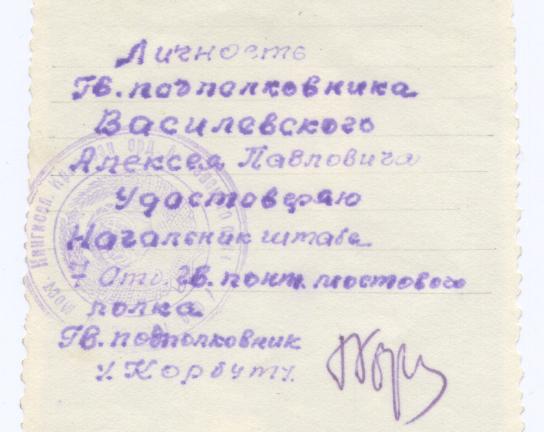 Личность
Гв. подполковника
Василевского
Алексея Павловича
Удостоверяю
Начальник штаба
7 Отд. Гв. понт. мостового
полка
Гв. подполковник
/Корбут/